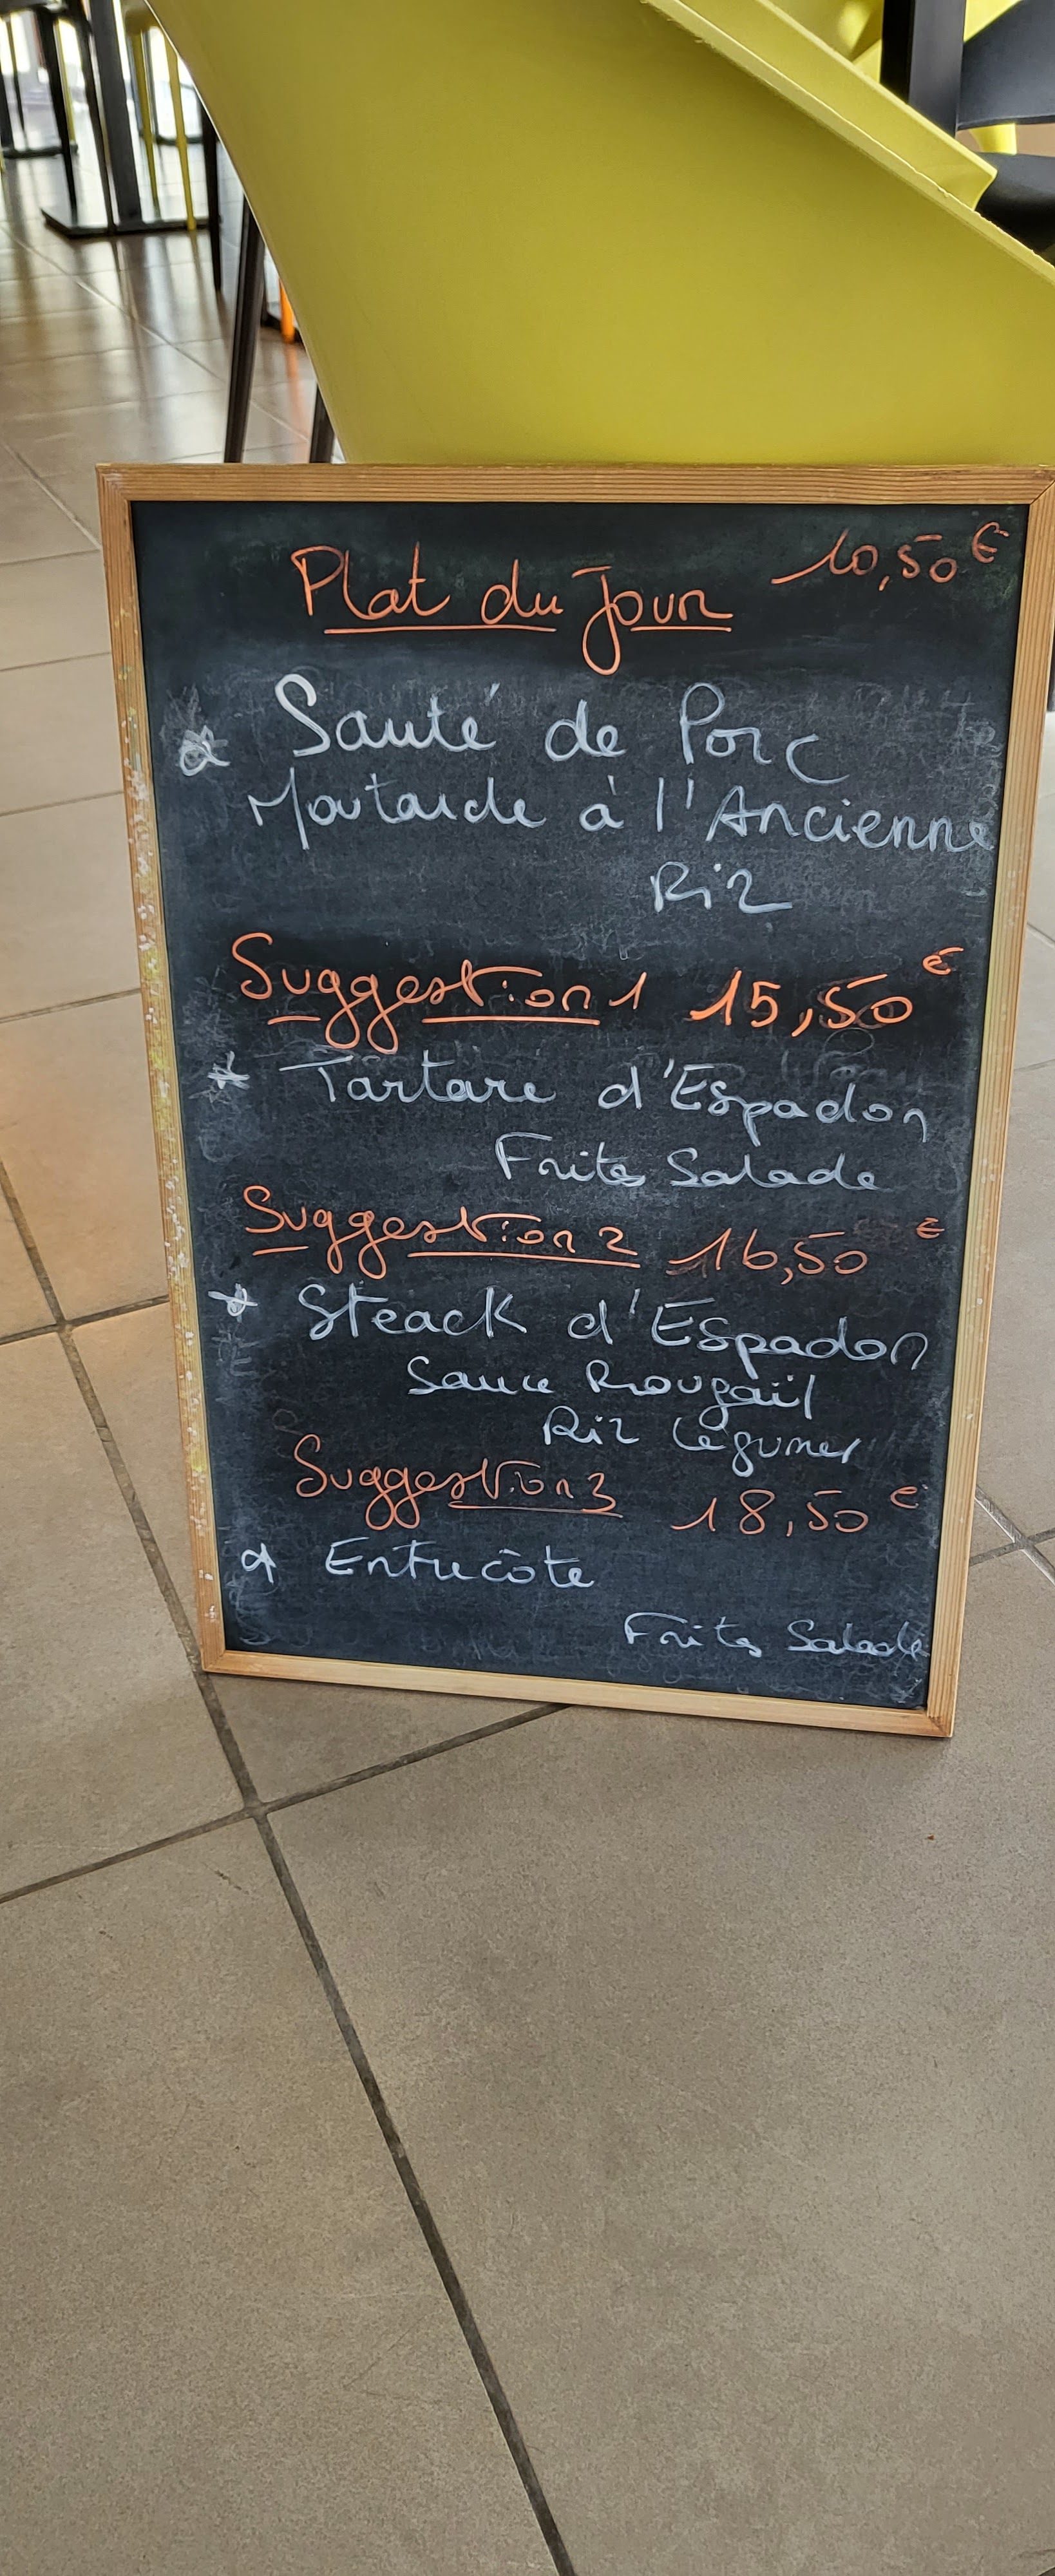 Plat du Jour 10,50€
* Sauté de Porc
Moutarde à l'Ancienne
Riz
Suggestion 1 15,50€
* Tartare d'Espadon
Frites Salade
Suggestion 2 16,50€
* Steack d'Espadon
Sauce Rougaïl
Riz Légumes
Suggestion 3 18,50€
* Entrecôte
Frites Salade